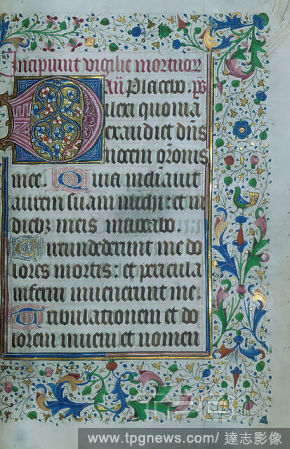 Incipiunt vigilie mortuor
añ Placebo. ps
Dilexi quoniã
exaudiet dñs
vocem orõnis
mee. Quia inclinavit
aurem suam michi: et in
diebz meis invocabo.
Circumdederunt me do
lores mortis: et pericula
inferni invenerunt me.
Tribulationem et do
lorem inveni et nomen
www.tpgnews.com/ 達志影像